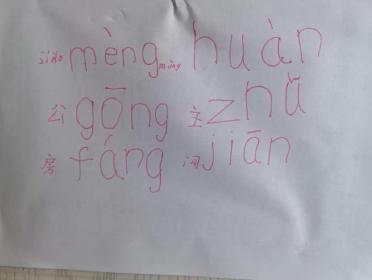 mèng huàn
公 gōng 主 zhǔ
房 fáng 间 jiān